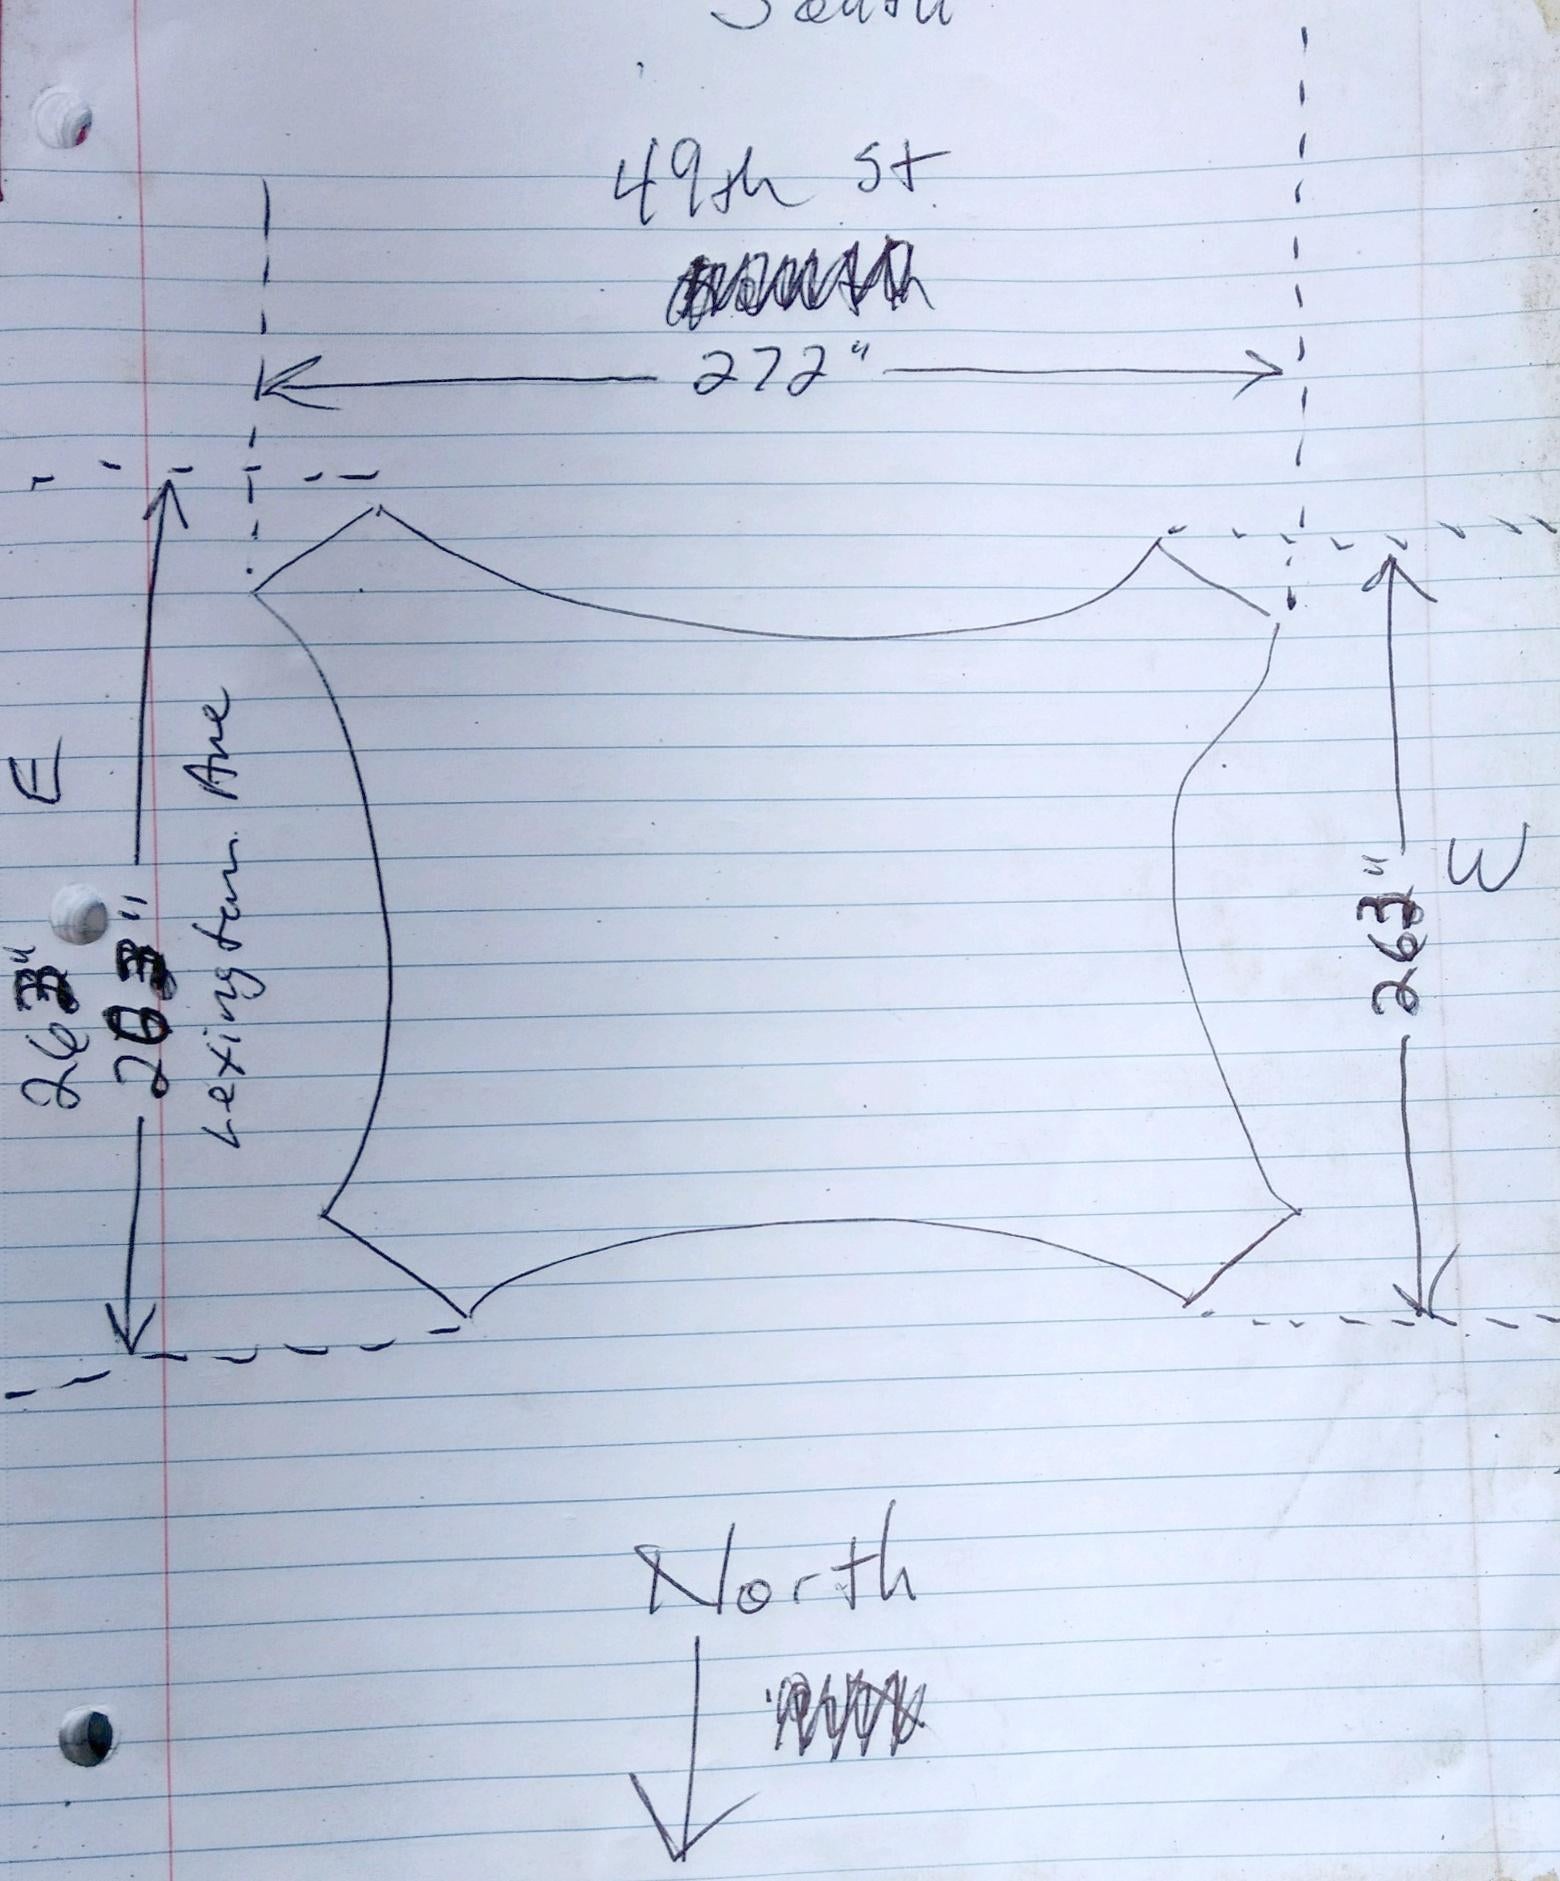 South
49th St
272"
E
263"
263"
Lexington Ave
263"
W
North